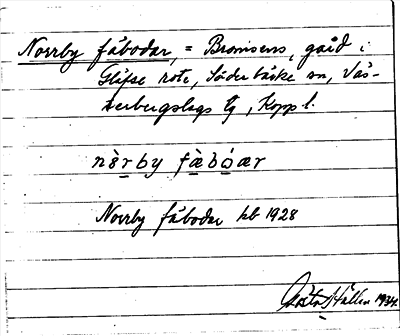 Norrby fäbodar, = Bromsens, gård i
Gläfse rote, Söderbärke sn, Väs-
terbergslags tg, Kopp l.
nòrby fä̀bòar
Norrby fäbodar hb 1928
Gösta Hallén 1934.